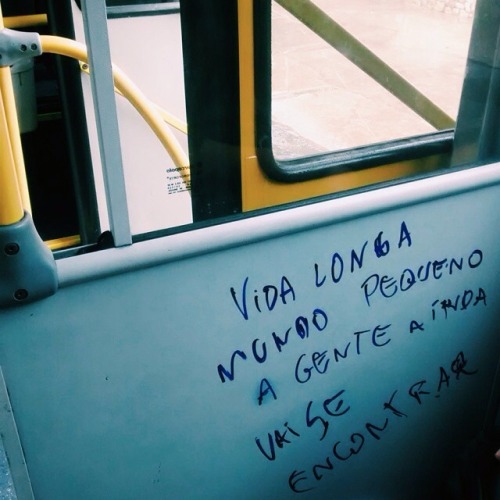 VIDA LONGA
MUNDO PEQUENO
A GENTE AINDA
VAI SE
ENCONTRAR